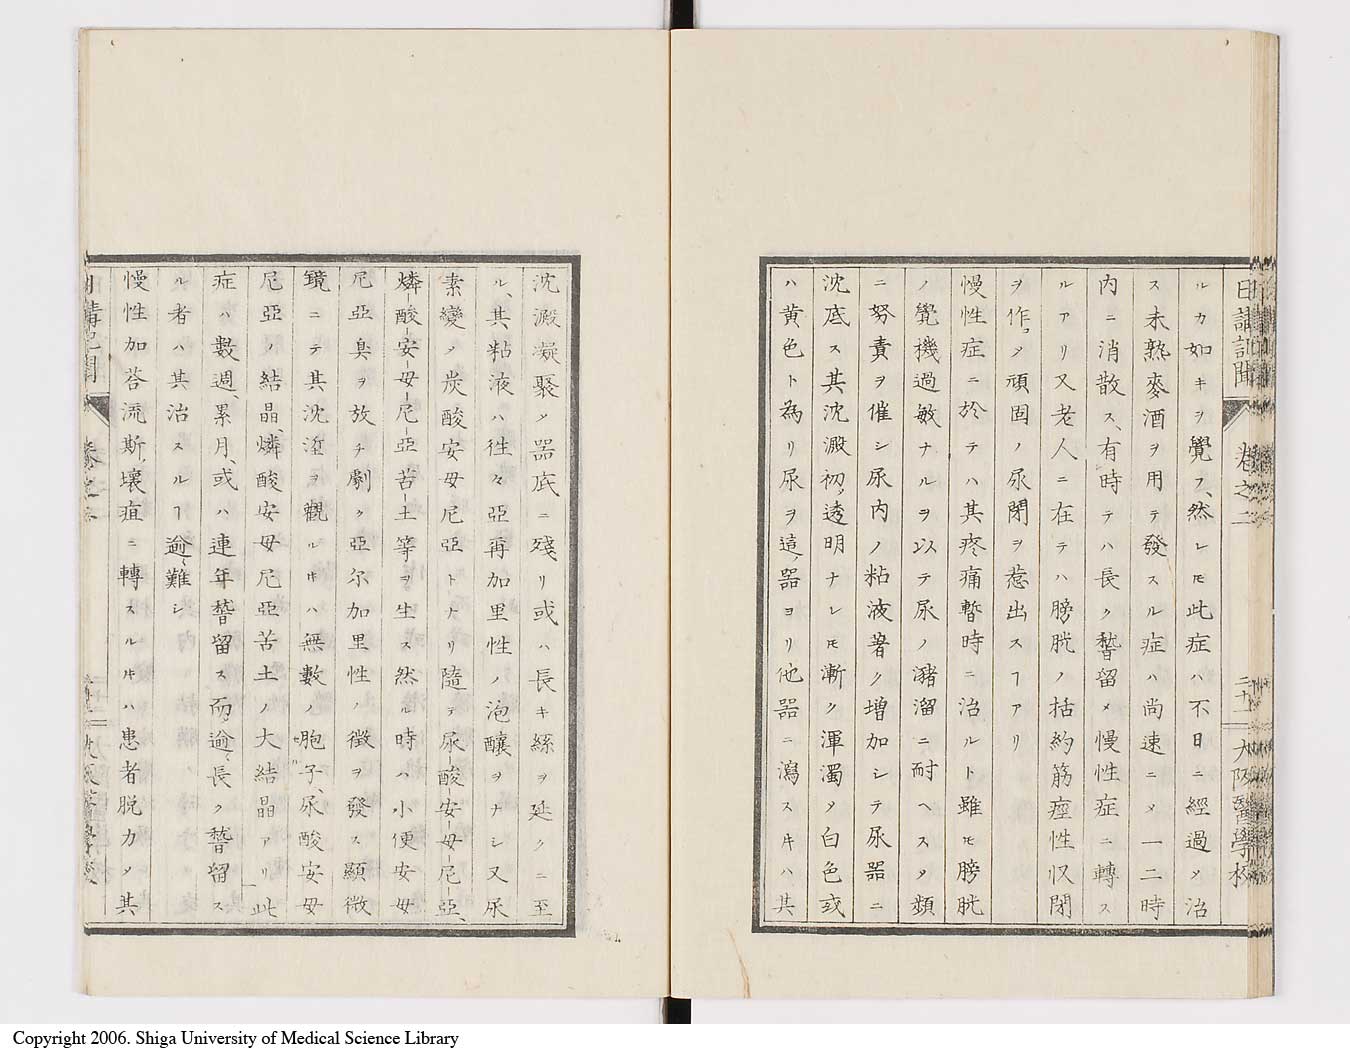 日講記聞 卷之二 二十 大阪醫學校
ルカ如キヲ覺フ、然レ𪜈此症ハ不日ニ經過ノ治
ス未熟麥酒ヲ用テ發スル症ハ尚速ニノ一二時
内ニ消散ス、有時テハ長ク稽留メ慢性症ニ轉ス
ルアリ又老人ニ在テハ膀胱ノ括約筋痙性収閉
ヲ作ノ頑固ノ尿閉ヲ惹出スヿアリ
慢性症ニ於テハ其疼痛暫時ニ治ルト雖𪜈膀胱
ノ覺機過敏ナルヲ以テ尿ノ瀦溜ニ耐ヘスノ頻
ニ努責ヲ催シ尿内ノ粘液著ク増加シテ尿器ニ
沈底ス其沈澱初メ透明ナレ𪜈漸ク渾濁ノ白色或
ハ黄色ト為リ尿ヲ這器ヨリ他器ニ瀉ス𪜀ハ其
沈澱凝聚ノ器底ニ殘リ或ハ長キ絲ヲ延クニ至
ル、其粘液ハ徃々亞再加里性ノ泡釀ヲナシ又尿
素變ノ炭酸安母尼亞トナリ隨テ尿酸安母尼亞、
燐酸安母尼亞苦土等ヲ生ス然ル時ハ小便安母
尼亞臭ヲ放チ劇ク亞尓加里性ノ徴ヲ發ス顯微
鏡ニテ其沈渣ヲ觀ル𪜀ハ無數ノ胞子、尿酸安母
尼亞ノ結晶、燐酸安母尼亞苦土ノ大結晶アリ此
症ハ數週、累月、或ハ連年稽留ス而逾長ク稽留ス
ル者ハ其治スルヿ逾難シ
慢性加荅流斯壞疽ニ轉スル𪜀ハ患者脱力ノ其